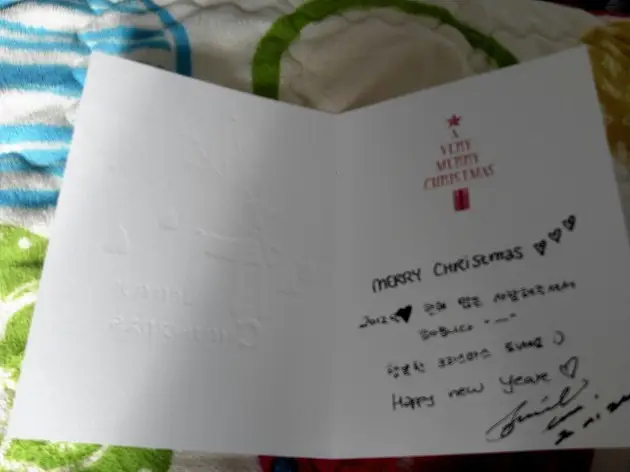 A
VERY
MERRY
CHRISTMAS
MERRY CHRISTmas ♡♡♡
2012년♥ 사랑해주셔서
행복한 크리스마스 보내세요 :)
Happy new year ♡